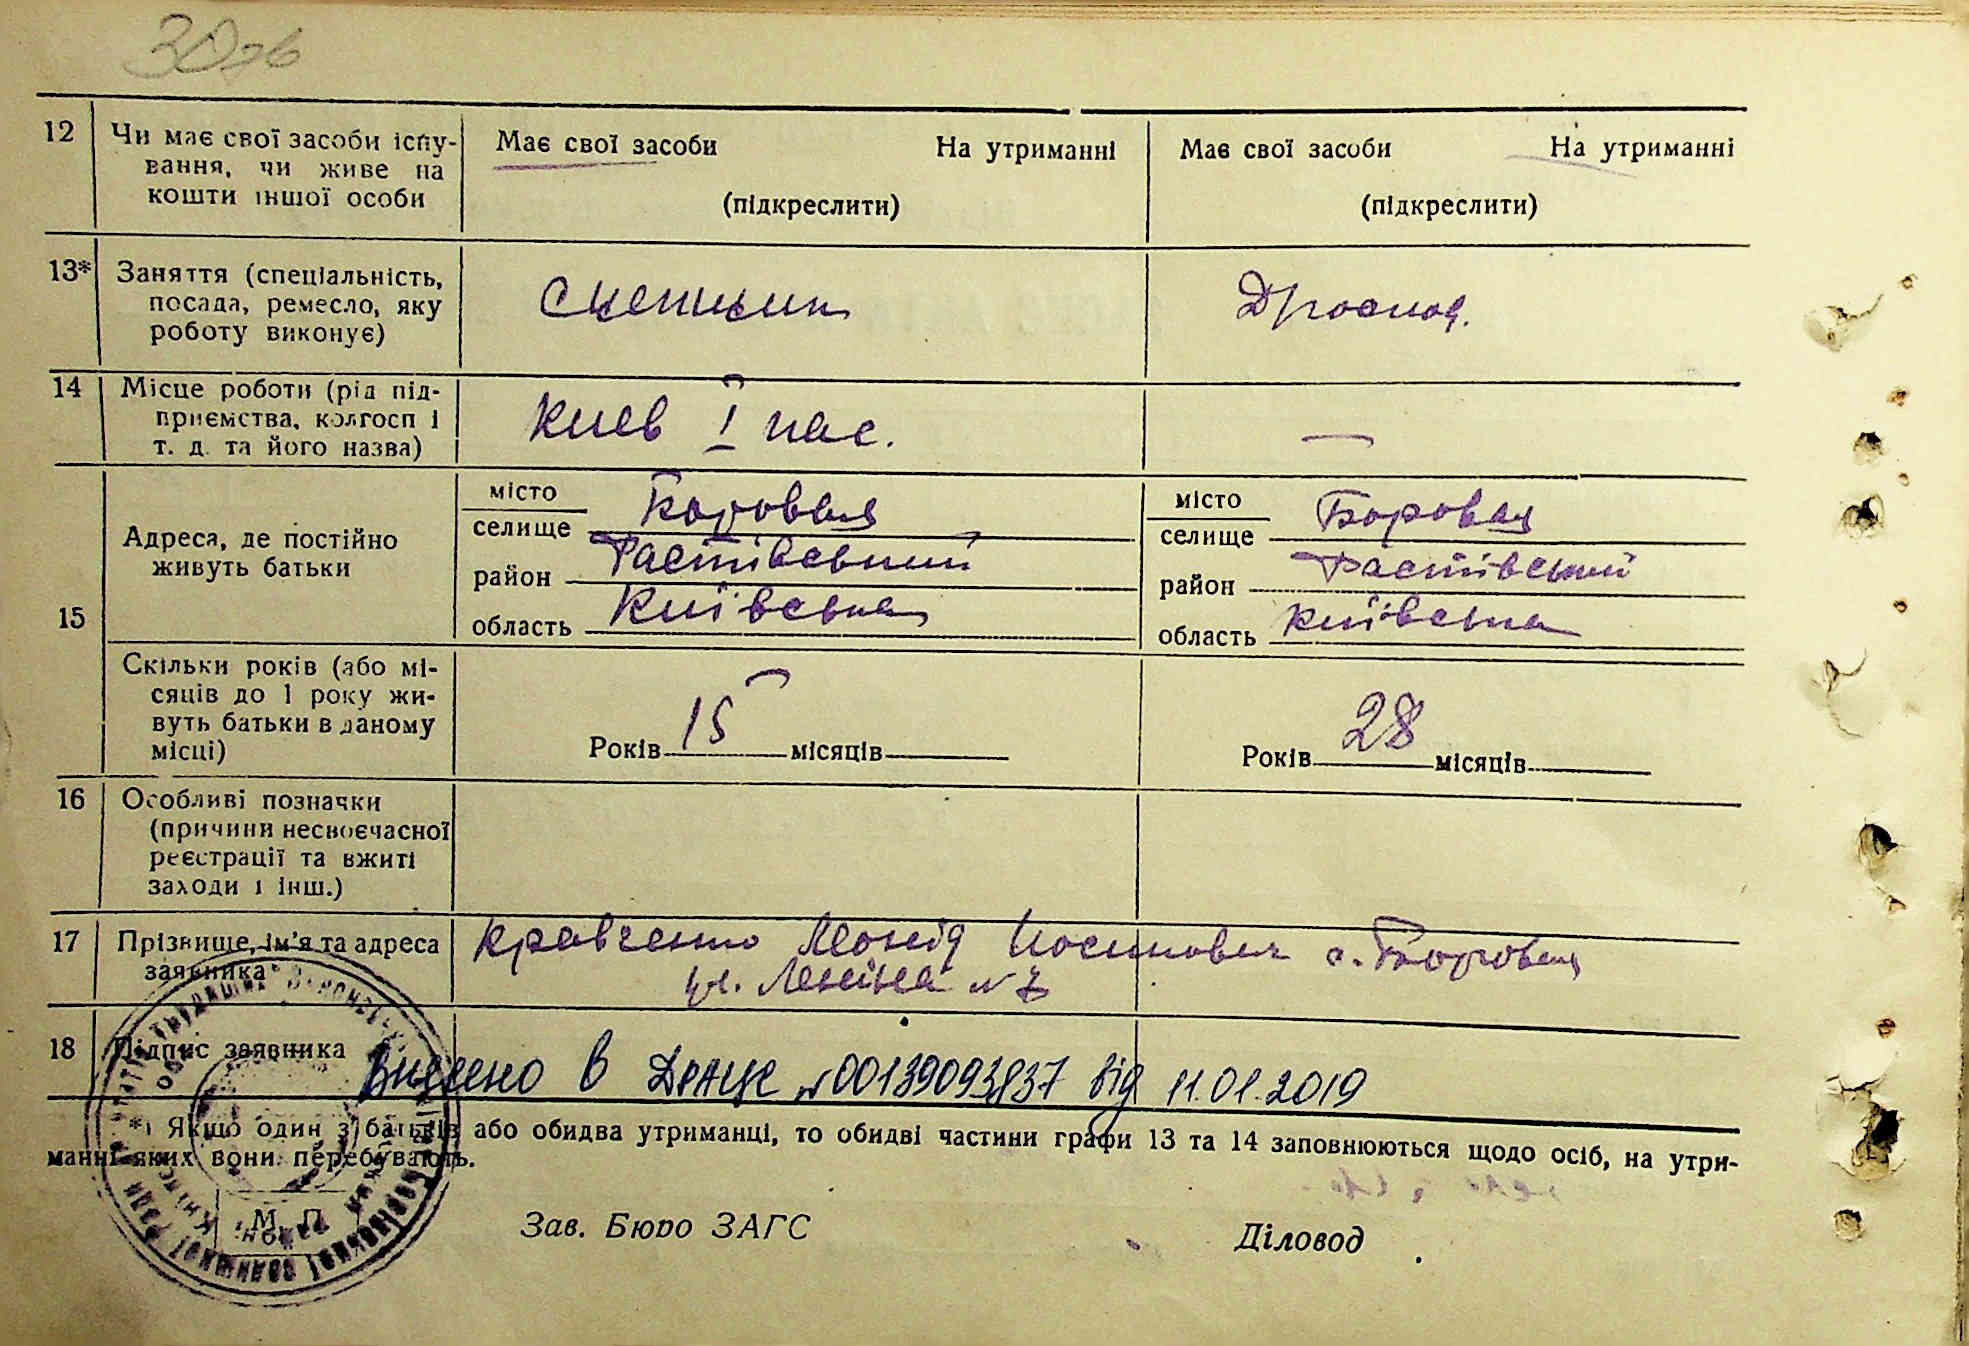 30зв
12 Чи має свої засоби існу-
вання, чи живе на
кошти іншої особи
Має свої засоби На утриманні
(підкреслити)
Має свої засоби На утриманні
(підкреслити)
13* Заняття (спеціальність,
посада, ремесло, яку
роботу виконує)
Сцепщик
Домогосп.
14 Місце роботи (рід під-
приємства, колгосп і
т. д. та його назва)
Киев I пас.
—
15 Адреса, де постійно
живуть батьки
місто
селище Боровая
район Фастівський
область Київська
місто
селище Боровая
район Фастівський
область Київська
Скільки років (або мі-
сяців до 1 року жи-
вуть батьки в даному
місці)
Років 15 місяців
Років 28 місяців
16 Особливі позначки
(причини несвоєчасної
реєстрації та вжиті
заходи і інш.)
17 Прізвище, ім'я та адреса
заявника
Кравченко Леонід Йосипович с. Боровая
ул. Леніна № 7
18 Підпис заявника
Внесено в ДРАЦС №00139093837 від 11.01.2019
*) Якщо один з батьків або обидва утриманці, то обидві частини графи 13 та 14 заповнюються щодо осіб, на утри-
манні яких вони перебувають.
М. П.
Зав. Бюро ЗАГС Діловод